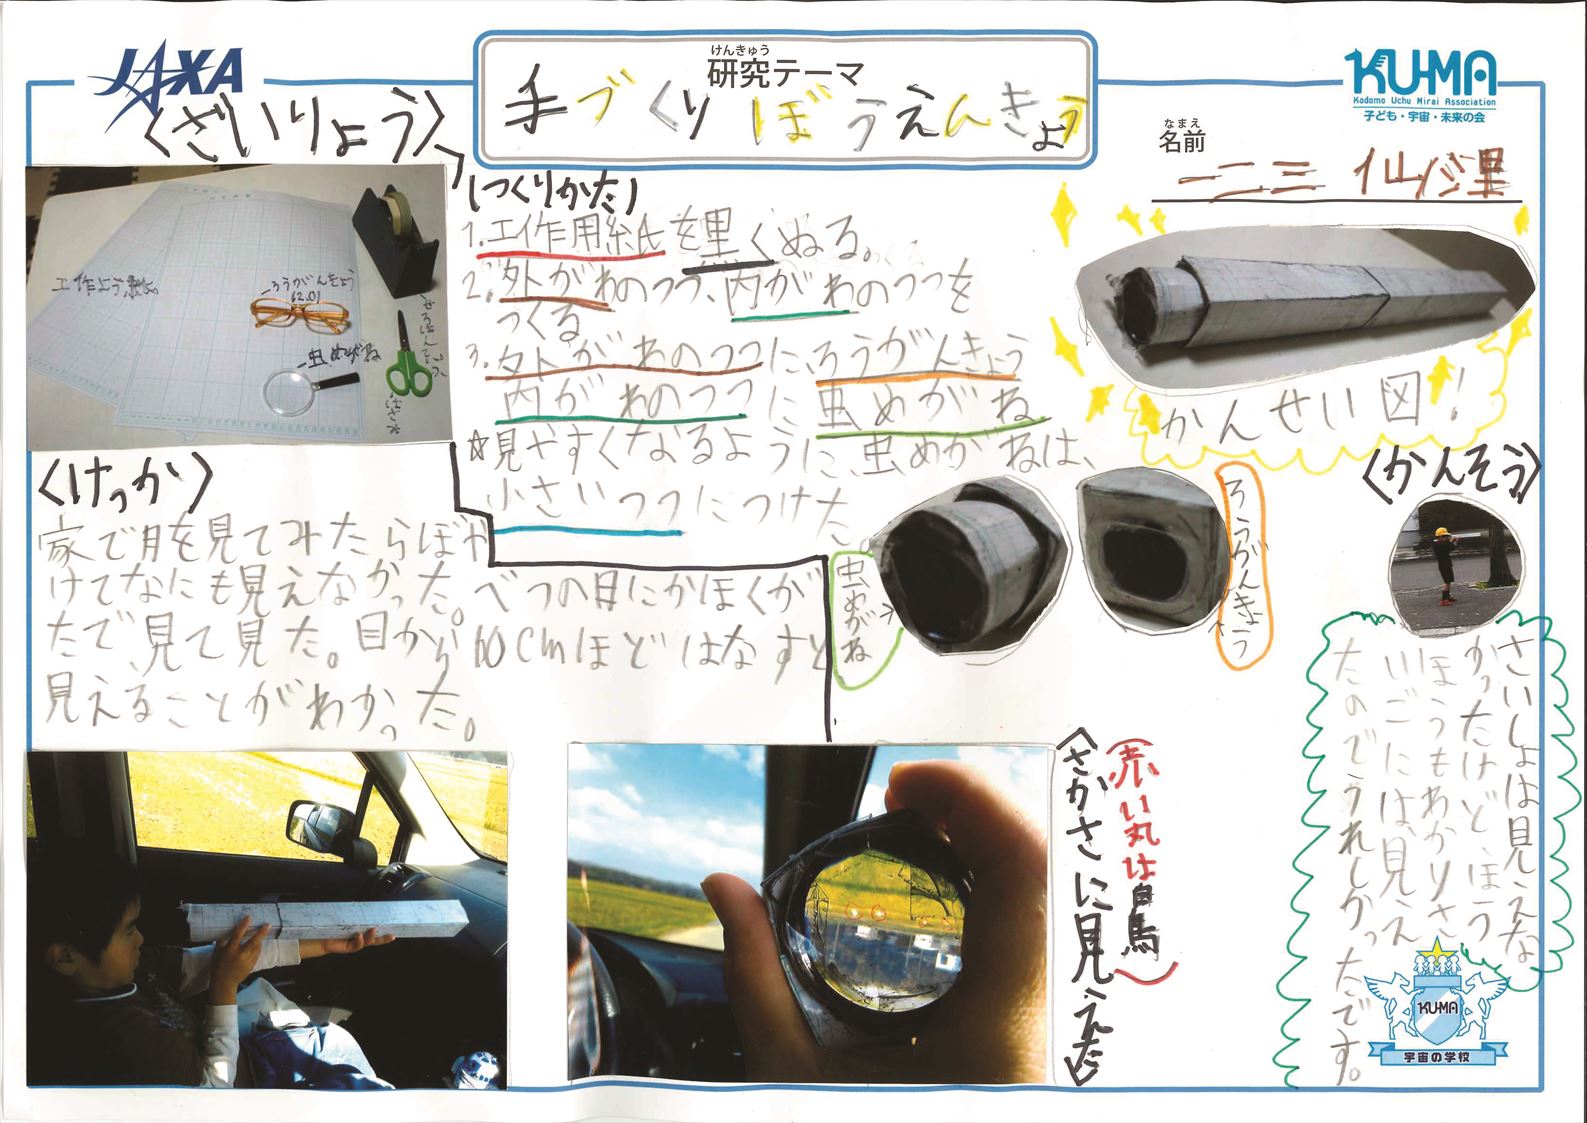 JAXA
けんきゅう
研究テーマ
手づくりぼうえんきょう
KU-MA
Kodomo Uchu Mirai Association
子ども・宇宙・未来の会
なまえ
名前
一二三
〈ざいりょう〉
工作よう紙
ろうがんきょう
虫めがね
せろはんてーぷ
はさみ
(つくりかた)
1.工作用紙を黒くぬる。
2.外がわのつつ、内がわのつつを
つくる
3.外がわのつつに、ろうがんきょう
内がわのつつに虫めがね
☆見やすくなるように虫めがねは、
小さいつつにつけた。
かんせい図!
虫めがね
ろうがんきょう
〈けっか〉
家で月を見てみたらぼや
けてなにも見えなかった。べつの日にかほくが
たで、見て見た。目から10cmほどはなすと
見えることがわかった。
(赤い丸は白鳥)
〈さかさに見えた〉
〈かんそう〉
さいしょは見えな
かったけどほう
ほうもわかりさ
いごには見え
たのでうれしかったです。
KU-MA
宇宙の学校